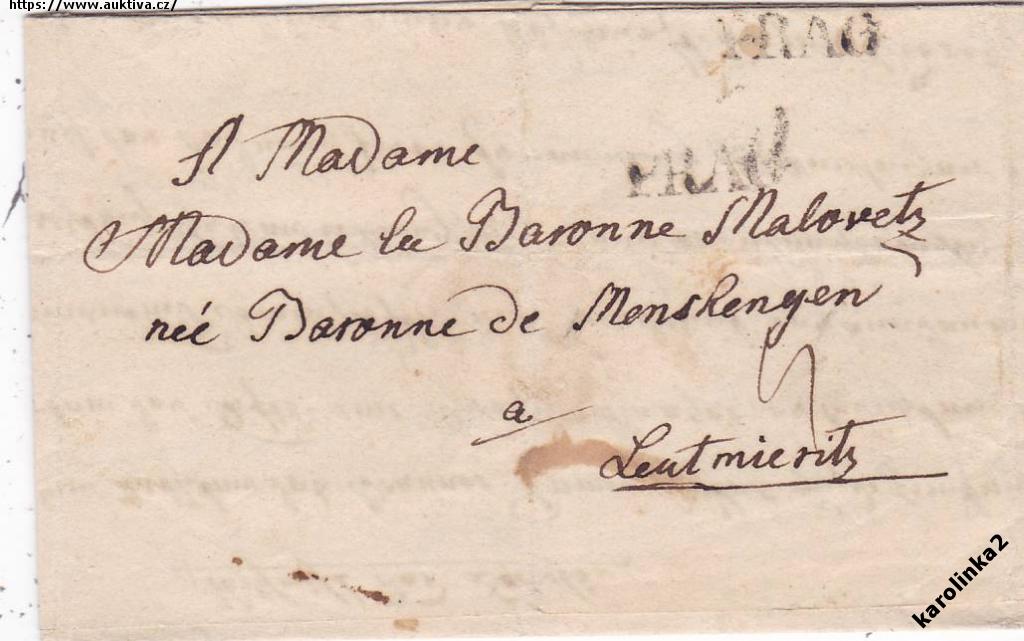 https://www.auktiva.cz/
PRAG
A Madame
PRAG
Madame la Baronne Malovetz
neé Baronne de Menshengen
a
Leutmieritz
karolinka2